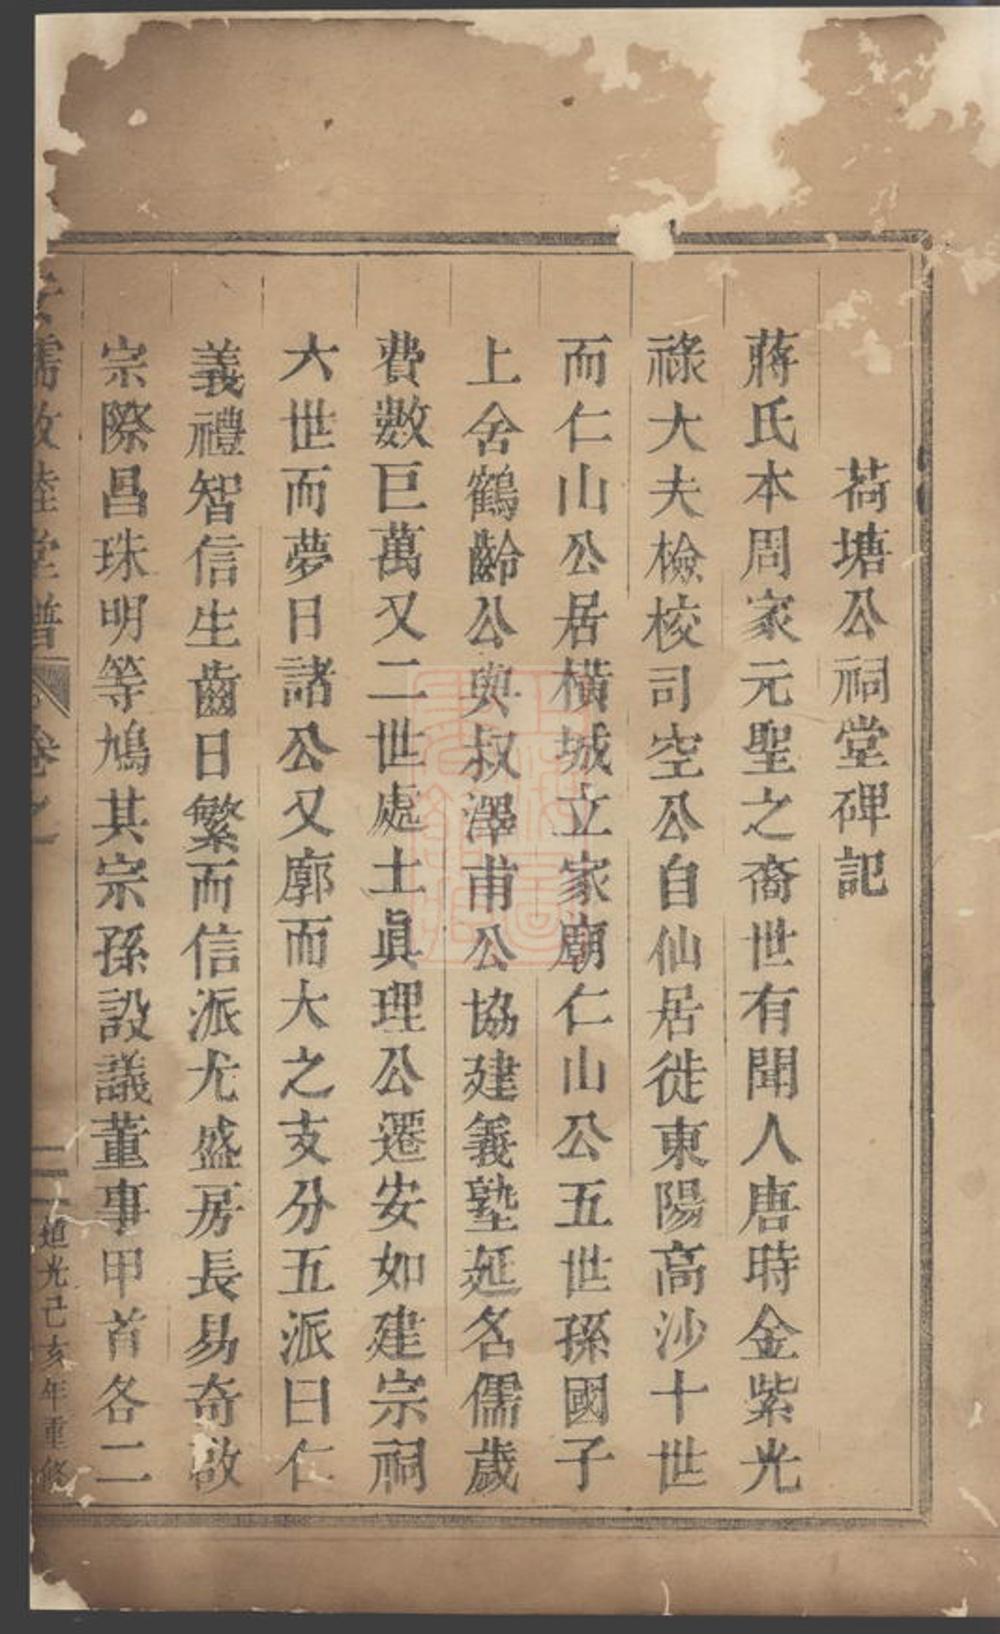 荷塘公祠堂碑記
蔣氏本周家元聖之裔世有聞人唐時金紫光
祿大夫檢校司空公自仙居徙東陽高沙十世
而仁山公居橫城立家廟仁山公五世孫國子
上舍鶴齡公與叔澤甫公協建義塾延名儒歲
費數巨萬又二世處士眞理公遷安如建宗祠
六世而夢日諸公又廓而大之支分五派曰仁
義禮智信生齒日繁而信派尤盛房長易奇啟
宗際昌珠明等鳩其宗孫設議董事甲首各二
儒敦睦堂譜 卷之 道光己亥年重修